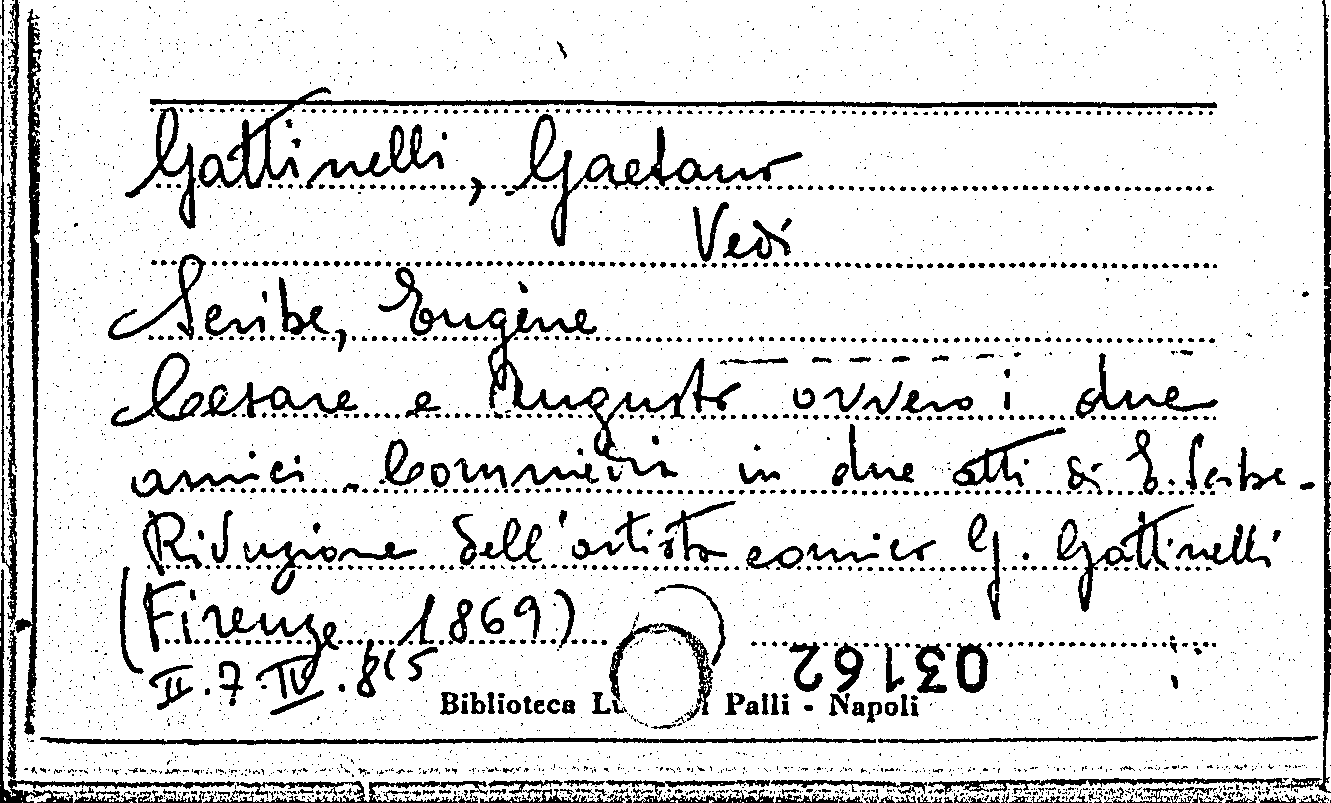 Gattinelli, Gaetano
Vedi
Scribe, Eugène
Cesare e Augusto ovvero i due
amici - Commedia in due atti di E. Scribe -
Riduzione dell'artista comico G. Gattinelli
(Firenze, 1869)
II.7.IV.8(5
03162
Biblioteca Palli - Napoli